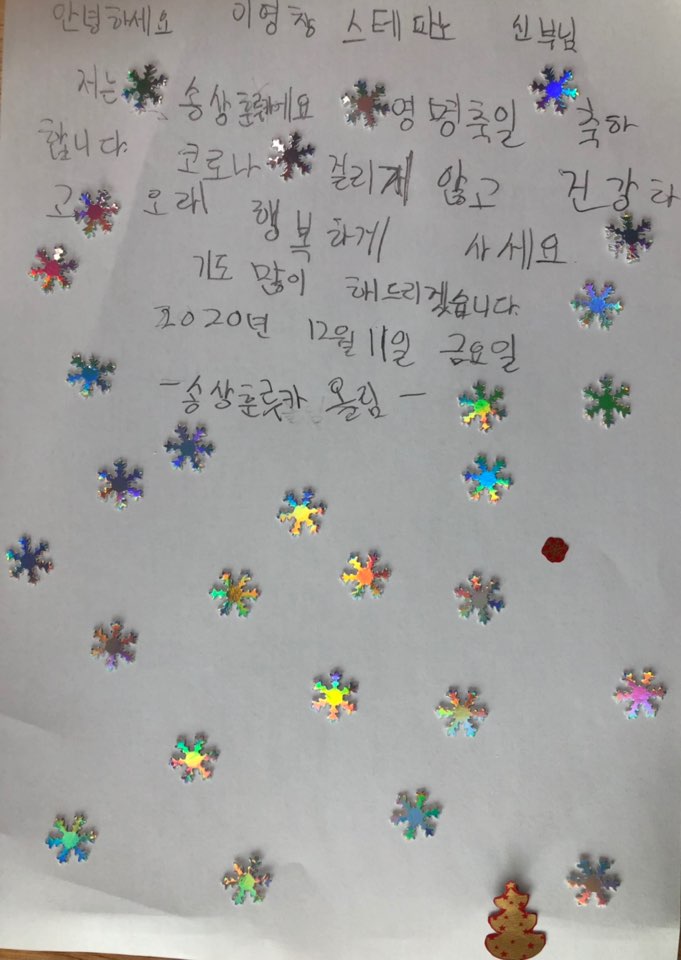 안녕하세요 이영창 스테파노 신부님
저는 송상훈이예요 영명축일 축하
합니다. 코로나 걸리지 않고 건강하
고 오래 행복하게 사세요.
기도 많이 해드리겠습니다.
2020년 12월 11일 금요일
-송상훈룻카 올림-